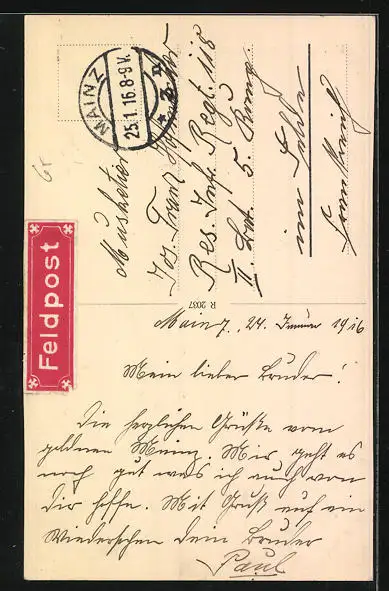 MAINZ
25.1.16.8-9V.
Musketier
Jos. Franz
Res. Inf. Regt. 118
II. Bat. 5. Komp.
im Felde
Frankreich
Feldpost
R 2037
Mainz, 24. Januar 1916
Mein lieber Bruder!
Die herzlichen Grüße vom
goldnen Mainz. Mir geht es
noch gut was ich auch von
Dir hoffe. Mit Gruß auf ein
Wiedersehen dein Bruder
Paul